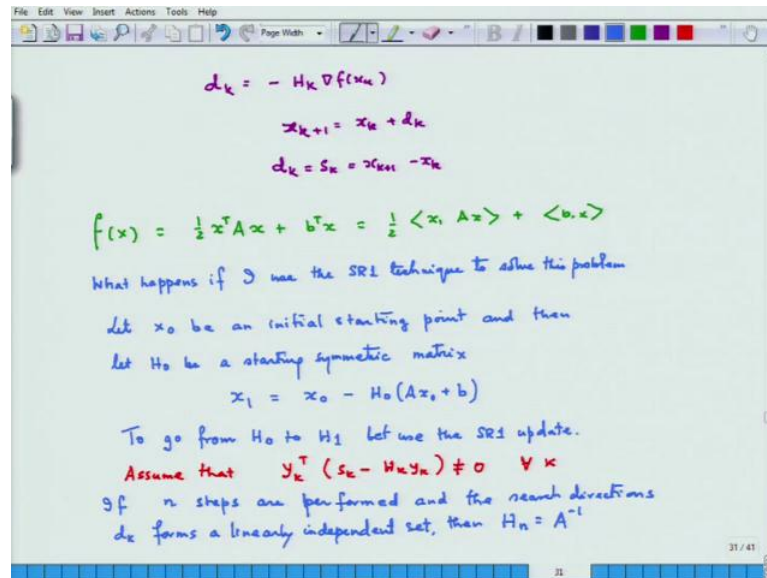 File Edit View Insert Actions Tools Help
Page Width
B I
d_k = - H_k ∇f(x_k)
x_{k+1} = x_k + d_k
d_k = s_k = x_{k+1} - x_k
f(x) = ½ x^T A x + b^T x = ½ <x, Ax> + <b, x>
What happens if I use the SR1 technique to solve this problem
Let x_0 be an initial starting point and then
let H_0 be a starting symmetric matrix
x_1 = x_0 - H_0 (Ax_0 + b)
To go from H_0 to H_1 let use the SR1 update.
Assume that y_k^T (s_k - H_k y_k) ≠ 0 ∀ k
If n steps are performed and the search directions
d_k forms a linearly independent set, then H_n = A^{-1}
31 / 41
31